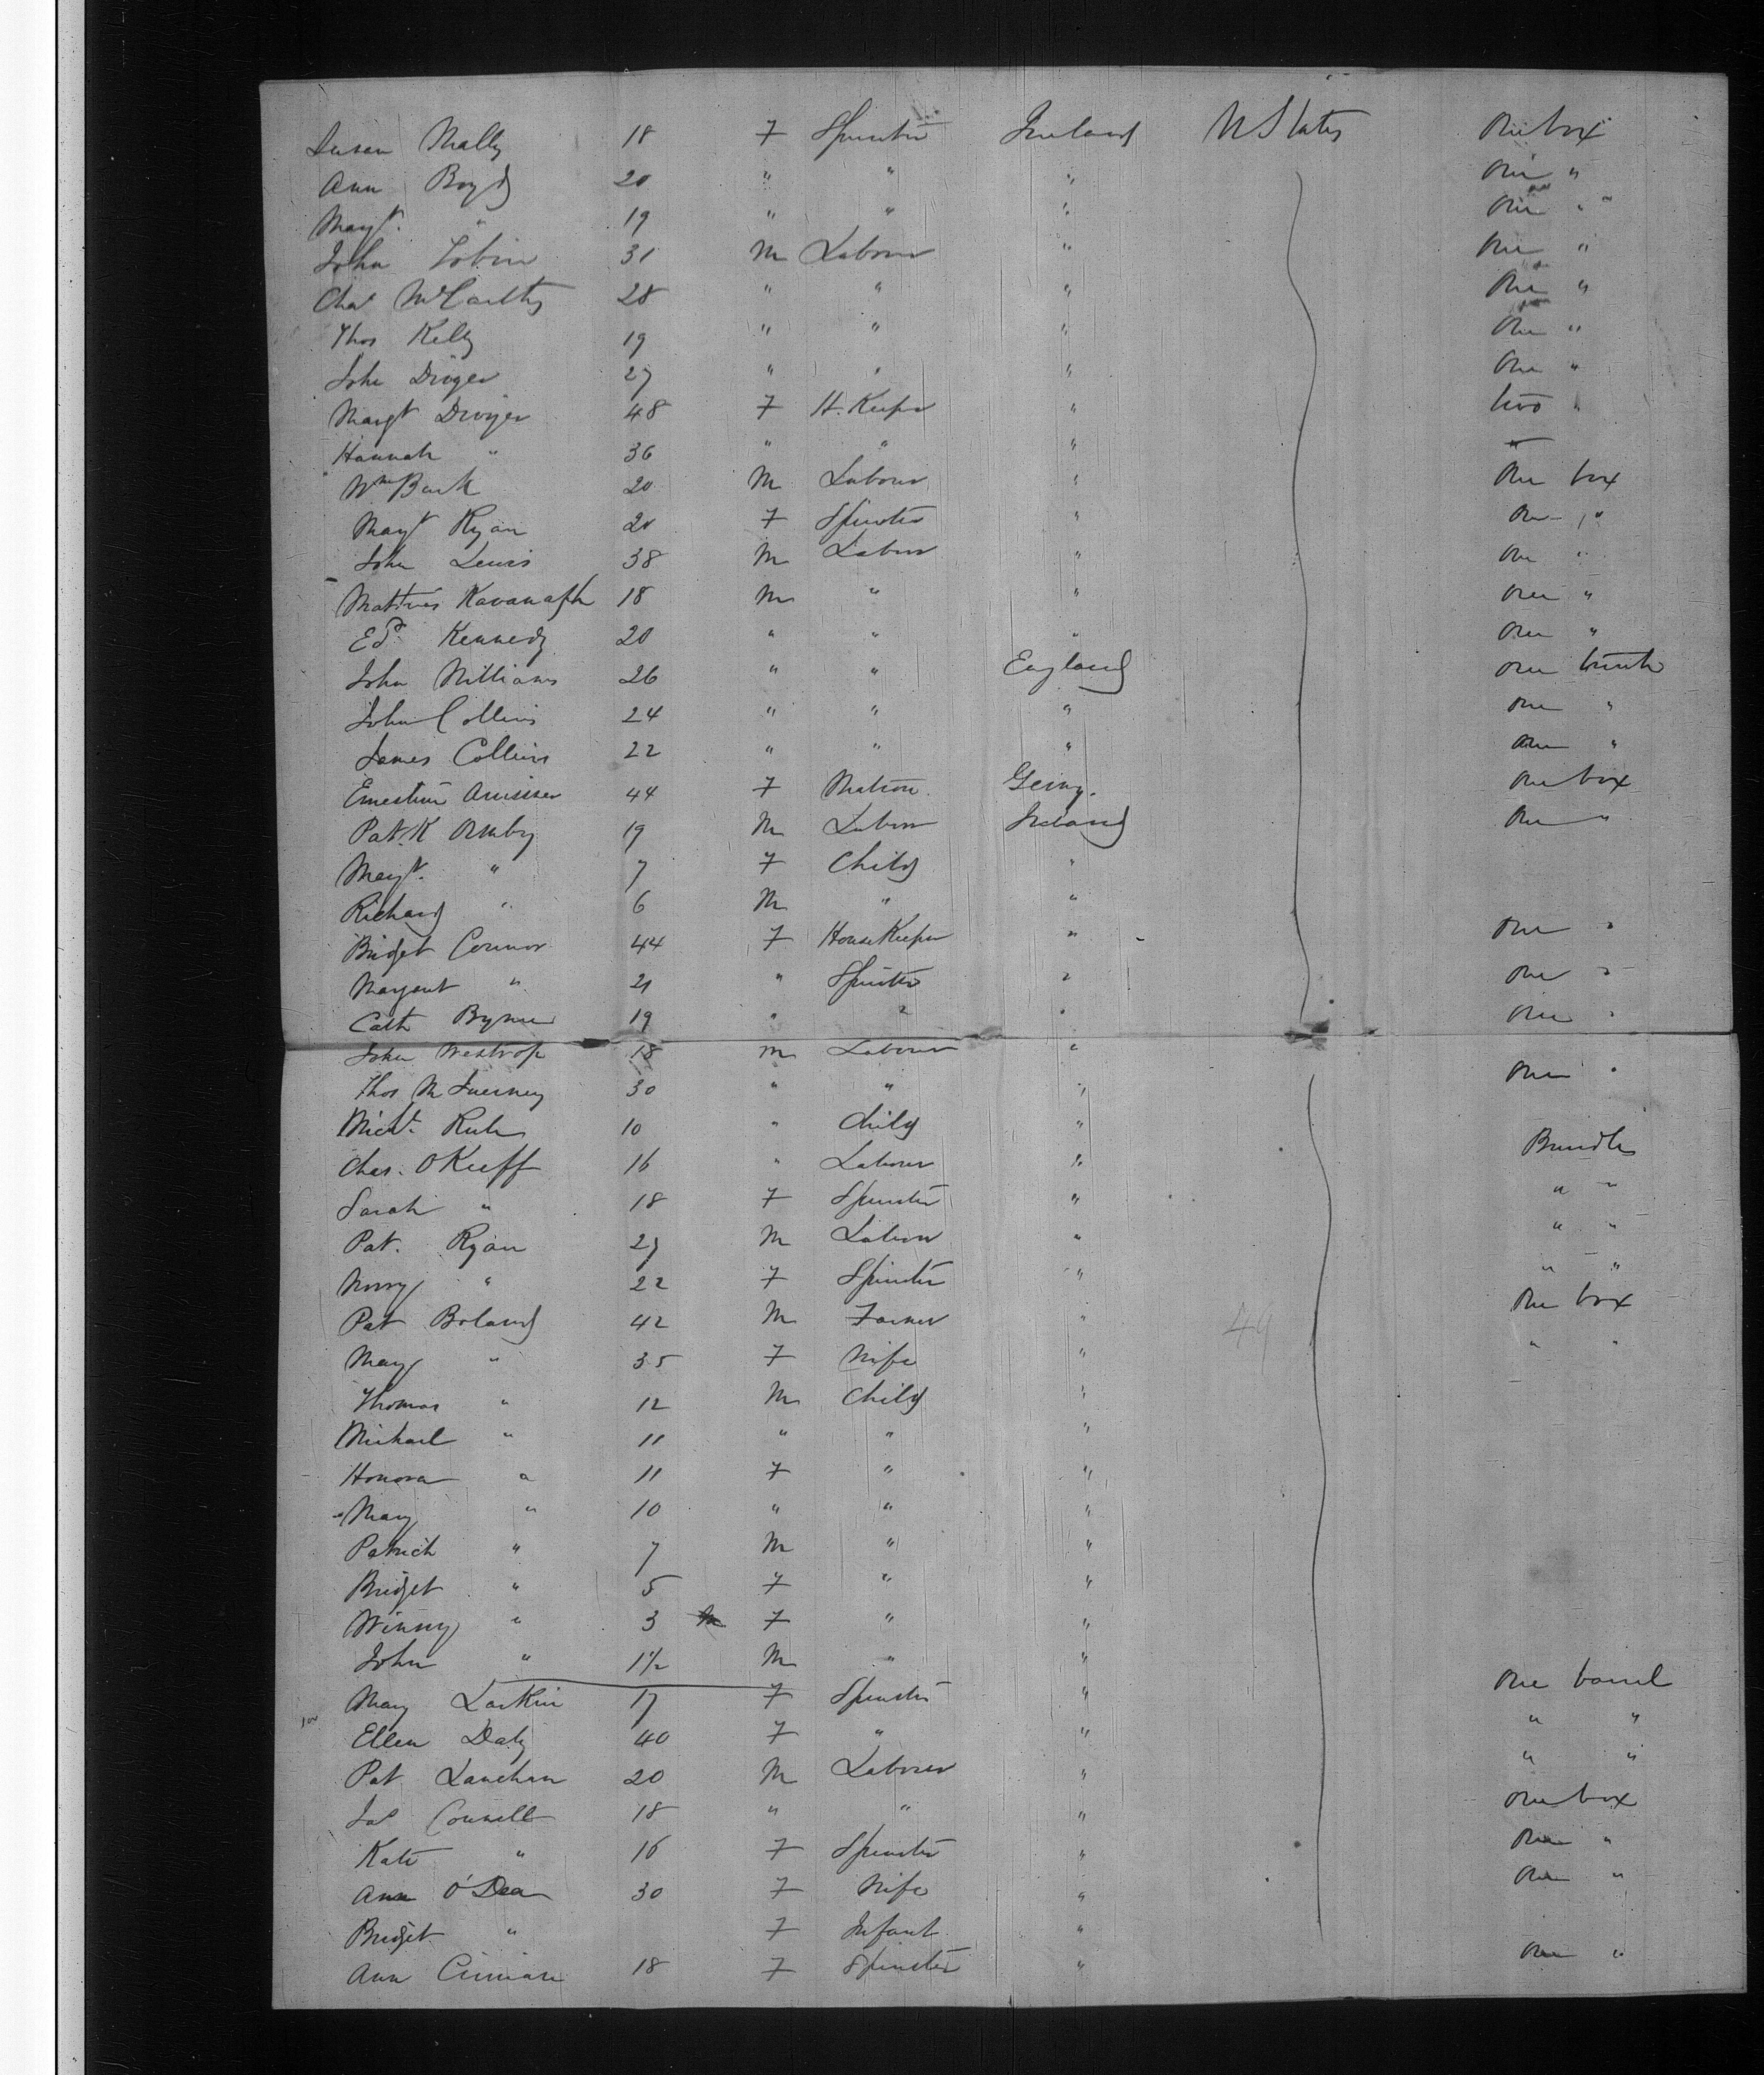 Susan Mally 18 F Spinster Ireland U States One box
Ann Boyd 20 " " " One "
Margt. " 19 " " " One " "
John Tobin 31 M Labourer " One "
Chas McCarthy 28 " " " One "
Thos Kelly 19 " " " One "
John Dwyer 27 " " " One "
Margt Dwyer 48 F H. Keeper " two "
Hannah " 36 " " " "
Wm Burk 20 M Labourer " One box
Margt Ryan 20 F Spinster " One "
John Lewis 38 M Labour " One "
Matthew Kavanagh 18 M " " One "
Ed. Kennedy 20 " " " One "
John Williams 26 " " England One trunk
John Collins 24 " " " One "
James Collins 22 " " " One "
Ernestine 44 F Matron Germy. One box
Patk Ormby 19 M Labour Ireland One "
Margt. " 7 F Child "
Richard " 6 M " "
Bridget Connor 44 F HouseKeeper " One "
Margaret " 21 " Spinster " One "
Cath Byrne 19 " " " One "
John Westrop 18 M Labourer "
Thos McInerney 30 " " " One "
Michl. 10 " Child "
Chas. OKeeff 16 " Labourer " Bundle
Sarah " 18 F Spinster " " "
Pat. Ryan 27 M Labour " " "
Norry " 22 F Spinster " " "
Pat Boland 42 M Farmer " 49 One box
Mary " 35 F Wife " " "
Thomas " 12 M Child "
Michael " 11 " " "
Honora " 11 F " "
Mary " 10 " " "
Patrick " 7 M " "
Bridget " 5 F " "
Winny " 3 M F " "
John " 1½ M " "
Mary Larkin 17 F Spinster " One barrel
Ellen Daly 40 F " " " "
Pat Lanehan 20 M Labourer " " "
Jas Connell 18 " " " One box
Kate " 16 F Spinster " One "
Ann O'Dea 30 F Wife " One "
Bridget " F Infant "
Ann 18 F Spinster " One "